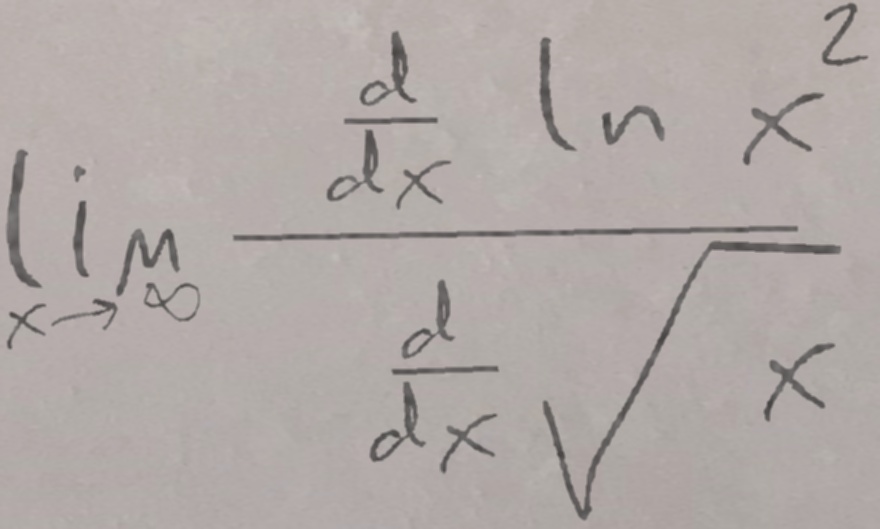 \lim_{x \to \infty} \frac{\frac{d}{dx} \ln x^2}{\frac{d}{dx} \sqrt{x}}